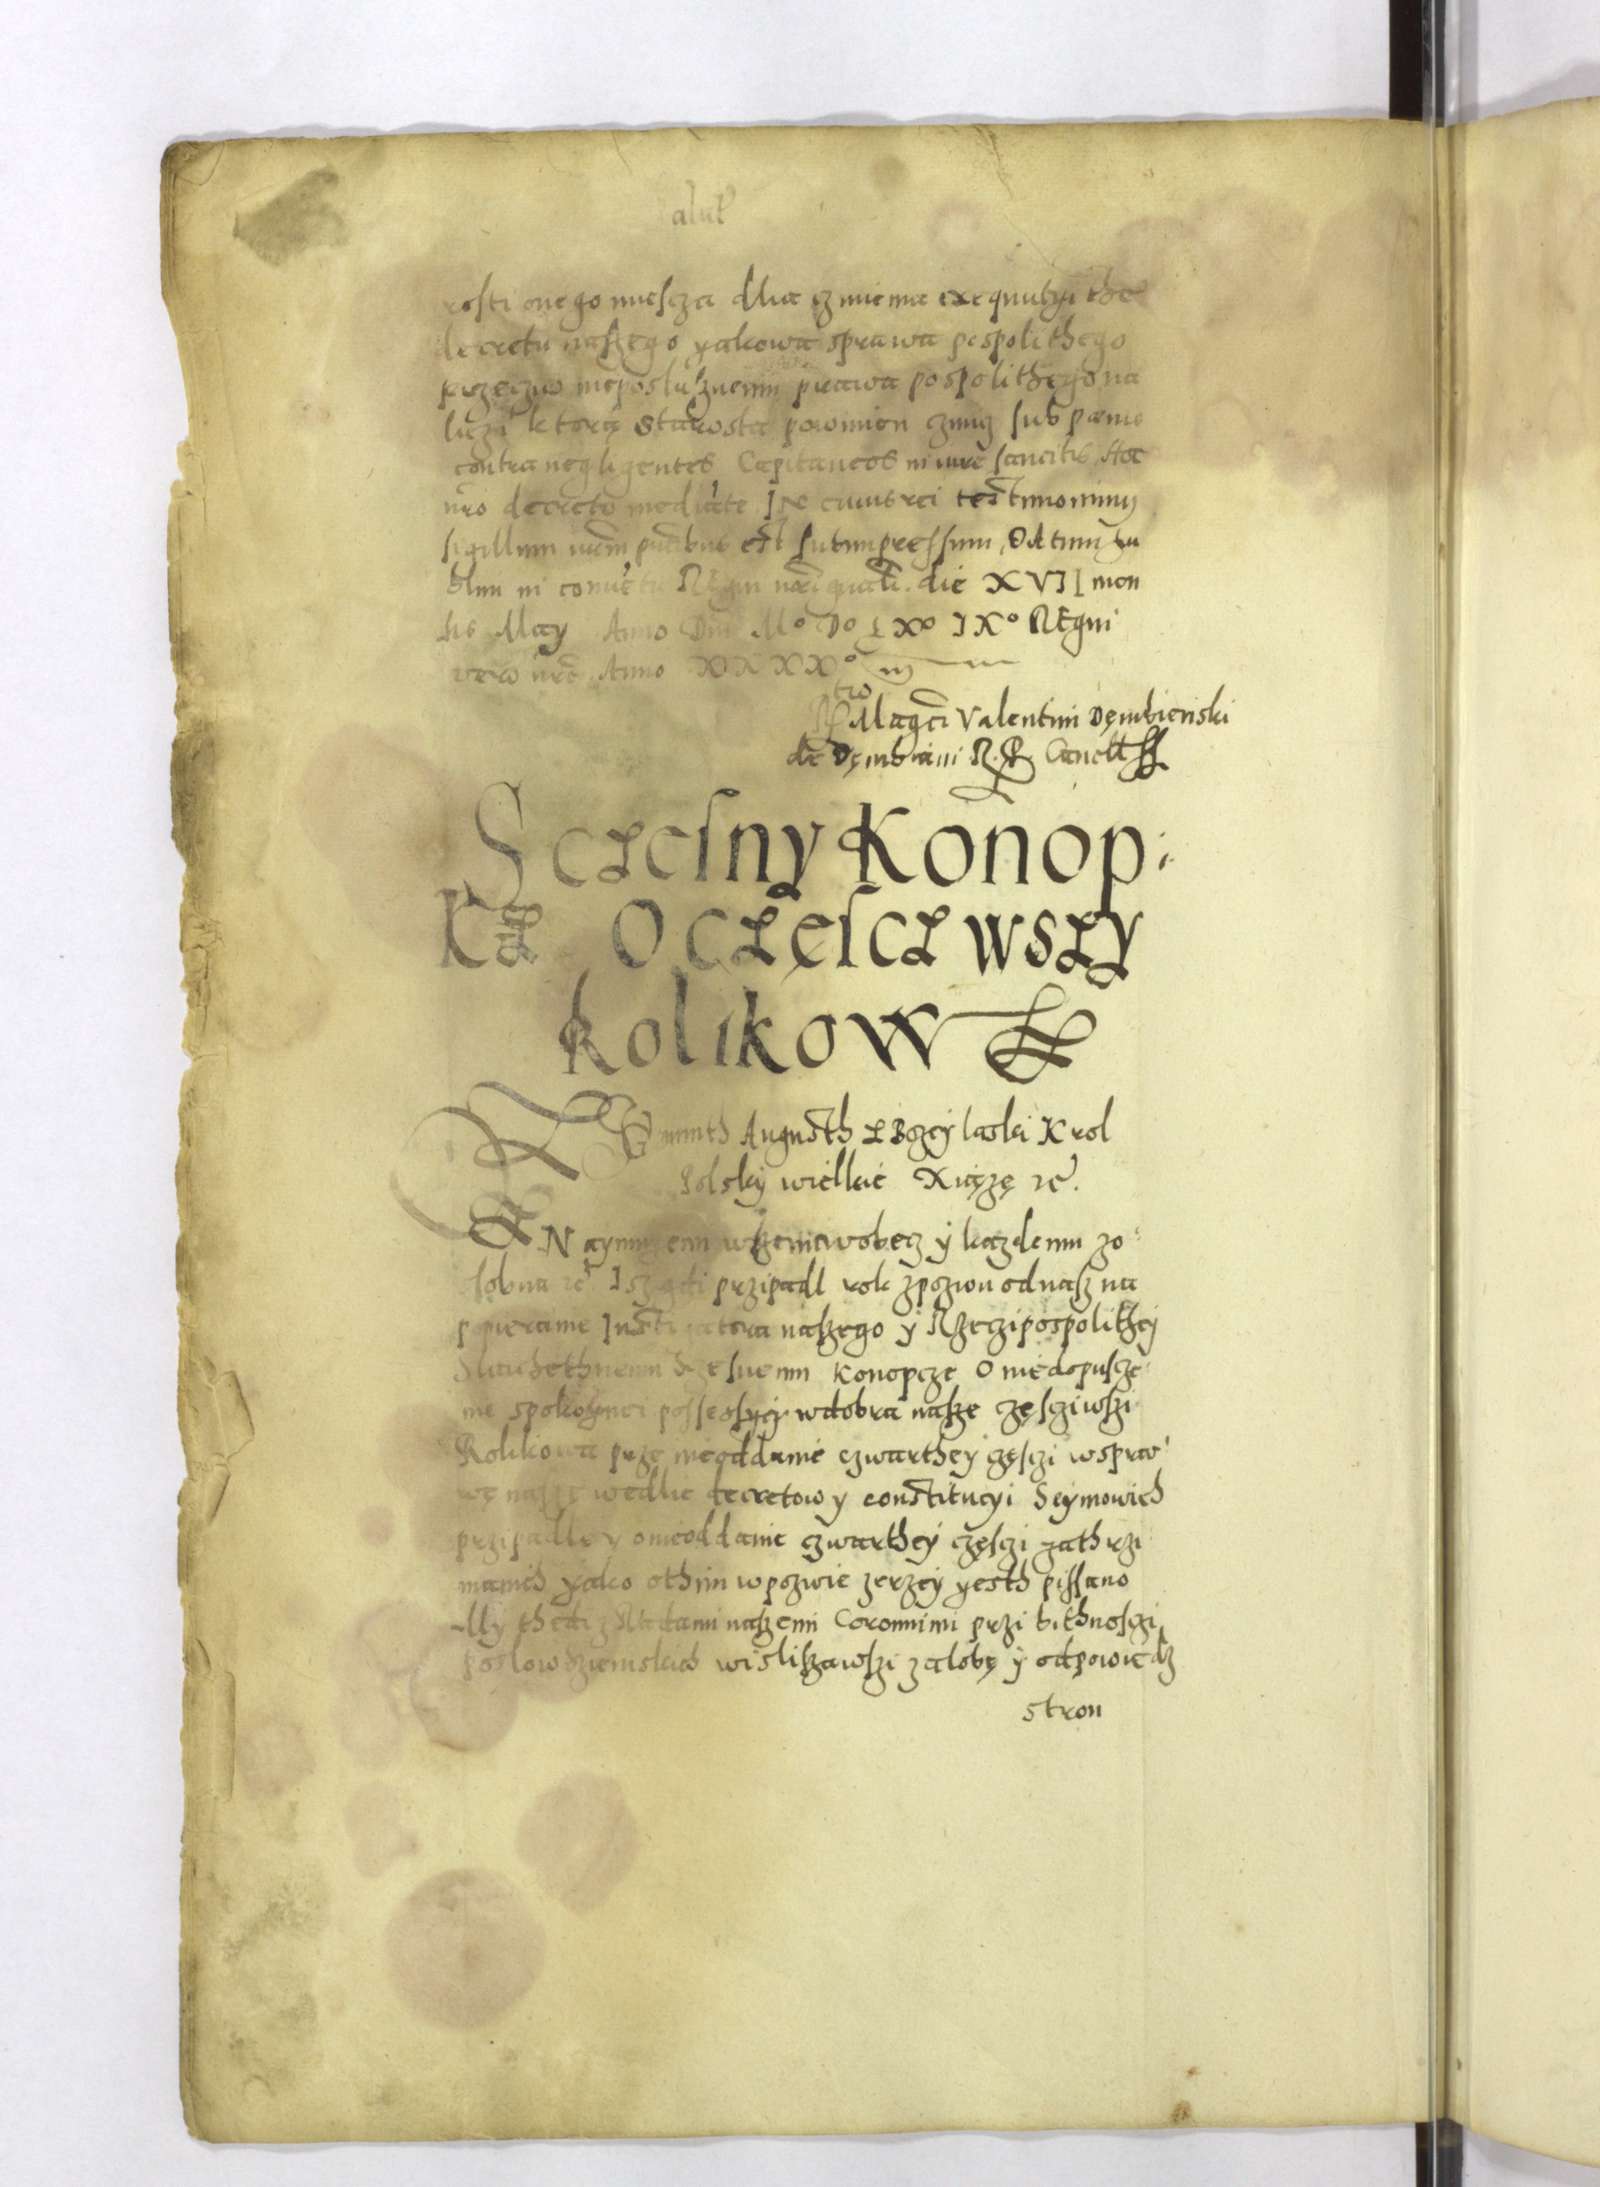 rosti onego miescza dlia czinienia exequutyi the
decretu naszego yakowa sprawa pospolithego
przecziw nieposlusznemu prawa pospolithego na
liezi ktorą Starosta powinien czinicz sub pœnis
contra negligentes Capitaneos in iure sancitis, Hoc
nro decreto mediāte In cuius rei testimonium
sigillum nrm pñtibus est subimpressum, Datum Lu
blini in conuētu Regni nrī gnāli. die XVII men
sis May Anno Dni Mº Dº LXº IXº REgni
vero nrī Anno XXXXº
Rtio Magci Valentini Dęmbienski
de Dęmbiani R. P. Cancell
Sczesny Konop:
Ka O cżęscz wszy
kolikow
Zigmunth Augusth Z Bozey laski Krol
Polsky wielkie Xiążę rc.
N aynizeni wszemwobecz y kazdemu zo=
sobna rc Isz gdi przipadl rok zpozwu od nasz na
popieranie Instigatora naszego y Rzeczipospolithey
Slachethnemu Sczesnemu Konopcze O niedopuscze=
nie spokoyney possessyey wdobra nasze częsciwszi
Rolikowa prze nieoddanie czwarthey częsci wspra=
wę naszę wedlie decretow y constitucyi Seymowich
przipadle y onieoddanie czwarthey częsci zathrzi
manich yako othim wpozwie zerzey yesth pissano
My thedi z Radami naszemi Coronnimi przi bithnosczi
poslow Ziemskich wisliszawszi zalobę y odpowiedz
stron